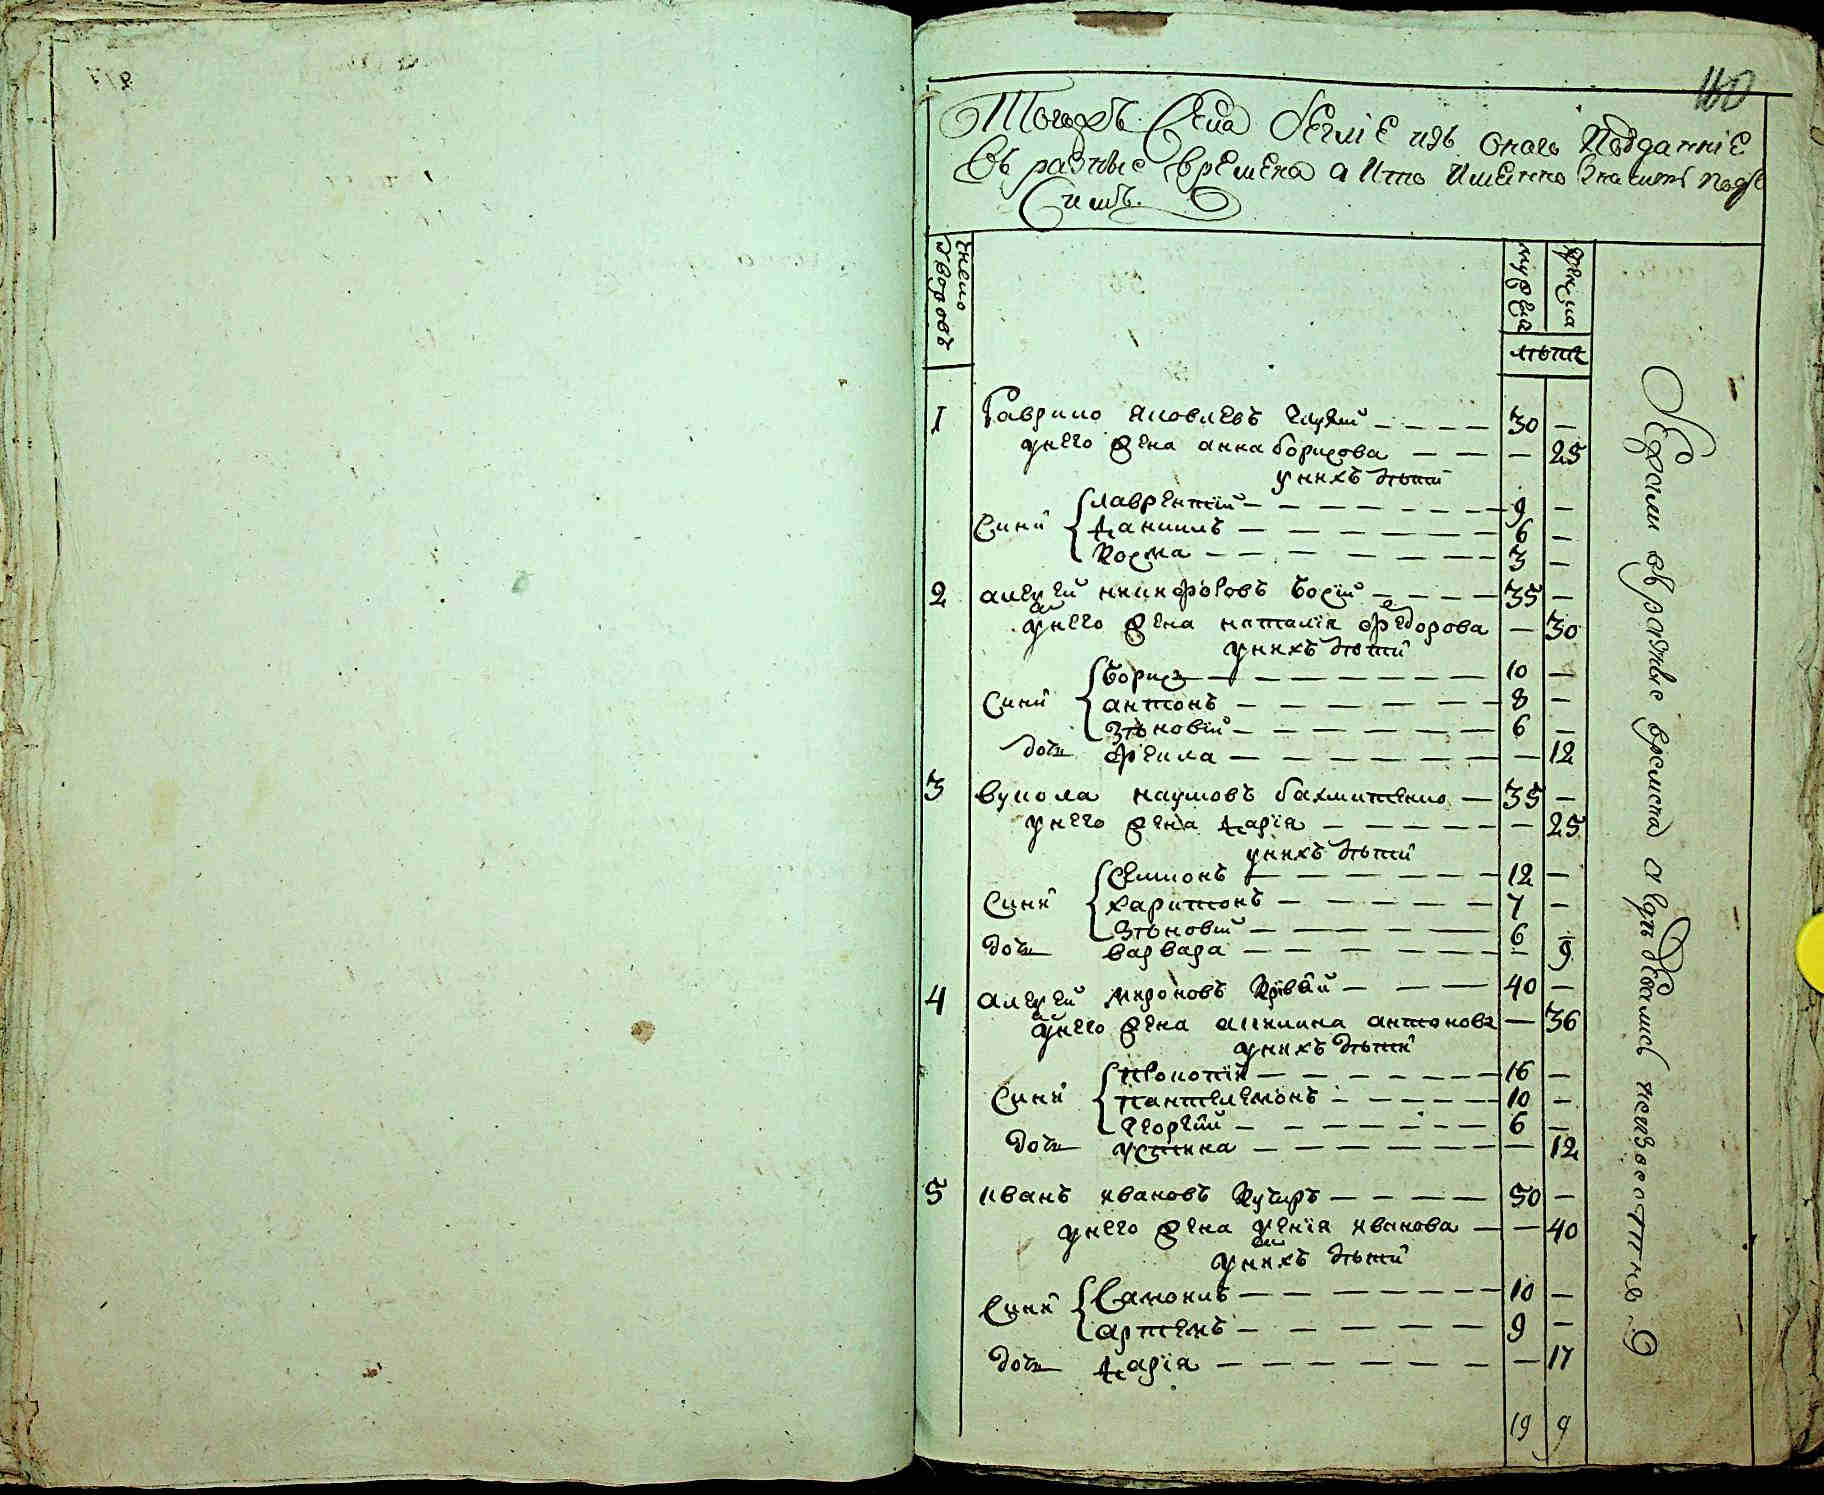 160
Тогожъ Села беглiе изъ оного Подданнiе
въ разные времена а Кто Именно Значитъ подъ
Симъ.
Число дворовъ
мужеска
женска
лѣта
1 Гаврило яковлевъ — — — — 30 —
унего жена анна борисова — — — 25
унихъ дѣти
Сини лаврентiй — — — — 9 —
данiилъ — — — — 6 —
Козма — — — — 3 —
2 алексей никифоровъ босiй — — — — 35 —
унего жена наталiя федорова — 30
унихъ дѣти
борисъ — — — — 10 —
Сини антонъ — — — — 8 —
Зѣновiй — — — — 6 —
дочь фекла — — — — — 12
3 вукола наумовъ бахмитенко — 35 —
унего жена дарiя — — — — — 25
унихъ дѣти
Семионъ — — — — 12 —
Сини харитонъ — — — — 7 —
Зѣновiй — — — — 6 —
дочь варвара — — — — — 9
4 алексей мироновъ Кривiй — — — 40 —
унего жена акилина антонова — 36
унихъ дѣти
Прокопiй — — — — 16 —
Сини пантелемонъ — — — — 10 —
георгiй — — — — 6 —
дочь устина — — — — — 12
5 иванъ ивановъ Кучеръ — — — — 50 —
унего жена ксенiя иванова — — 40
унихъ дѣти
Сини Самоилъ — — — — 10 —
артемъ — — — — 9 —
дочь дарiя — — — — — 17
19 9
бежали въ разные времена а где девались неизвестно